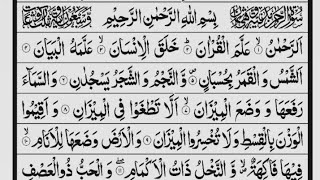 بِسْمِ اللهِ الرَّحْمٰنِ الرَّحِيْمِ
اَلرَّحْمٰنُ ۙ عَلَّمَ الْقُرْاٰنَ ؕ خَلَقَ الْاِنْسَانَ ۙ عَلَّمَهُ الْبَيَانَ
اَلشَّمْسُ وَ الْقَمَرُ بِحُسْبَانٍ ۪ وَّ النَّجْمُ وَ الشَّجَرُ يَسْجُدٰنِ وَ السَّمَآءَ
رَفَعَهَا وَ وَضَعَ الْمِيْزَانَ ۙ اَلَّا تَطْغَوْا فِي الْمِيْزَانِ وَ اَقِيْمُوا
الْوَزْنَ بِالْقِسْطِ وَ لَا تُخْسِرُوا الْمِيْزَانَ وَ الْاَرْضَ وَضَعَهَا لِلْاَنَامِ ۙ
فِيْهَا فَاكِهَةٌ ۪ۙ وَّ النَّخْلُ ذَاتُ الْاَكْمَامِ ۖ وَ الْحَبُّ ذُو الْعَصْفِ